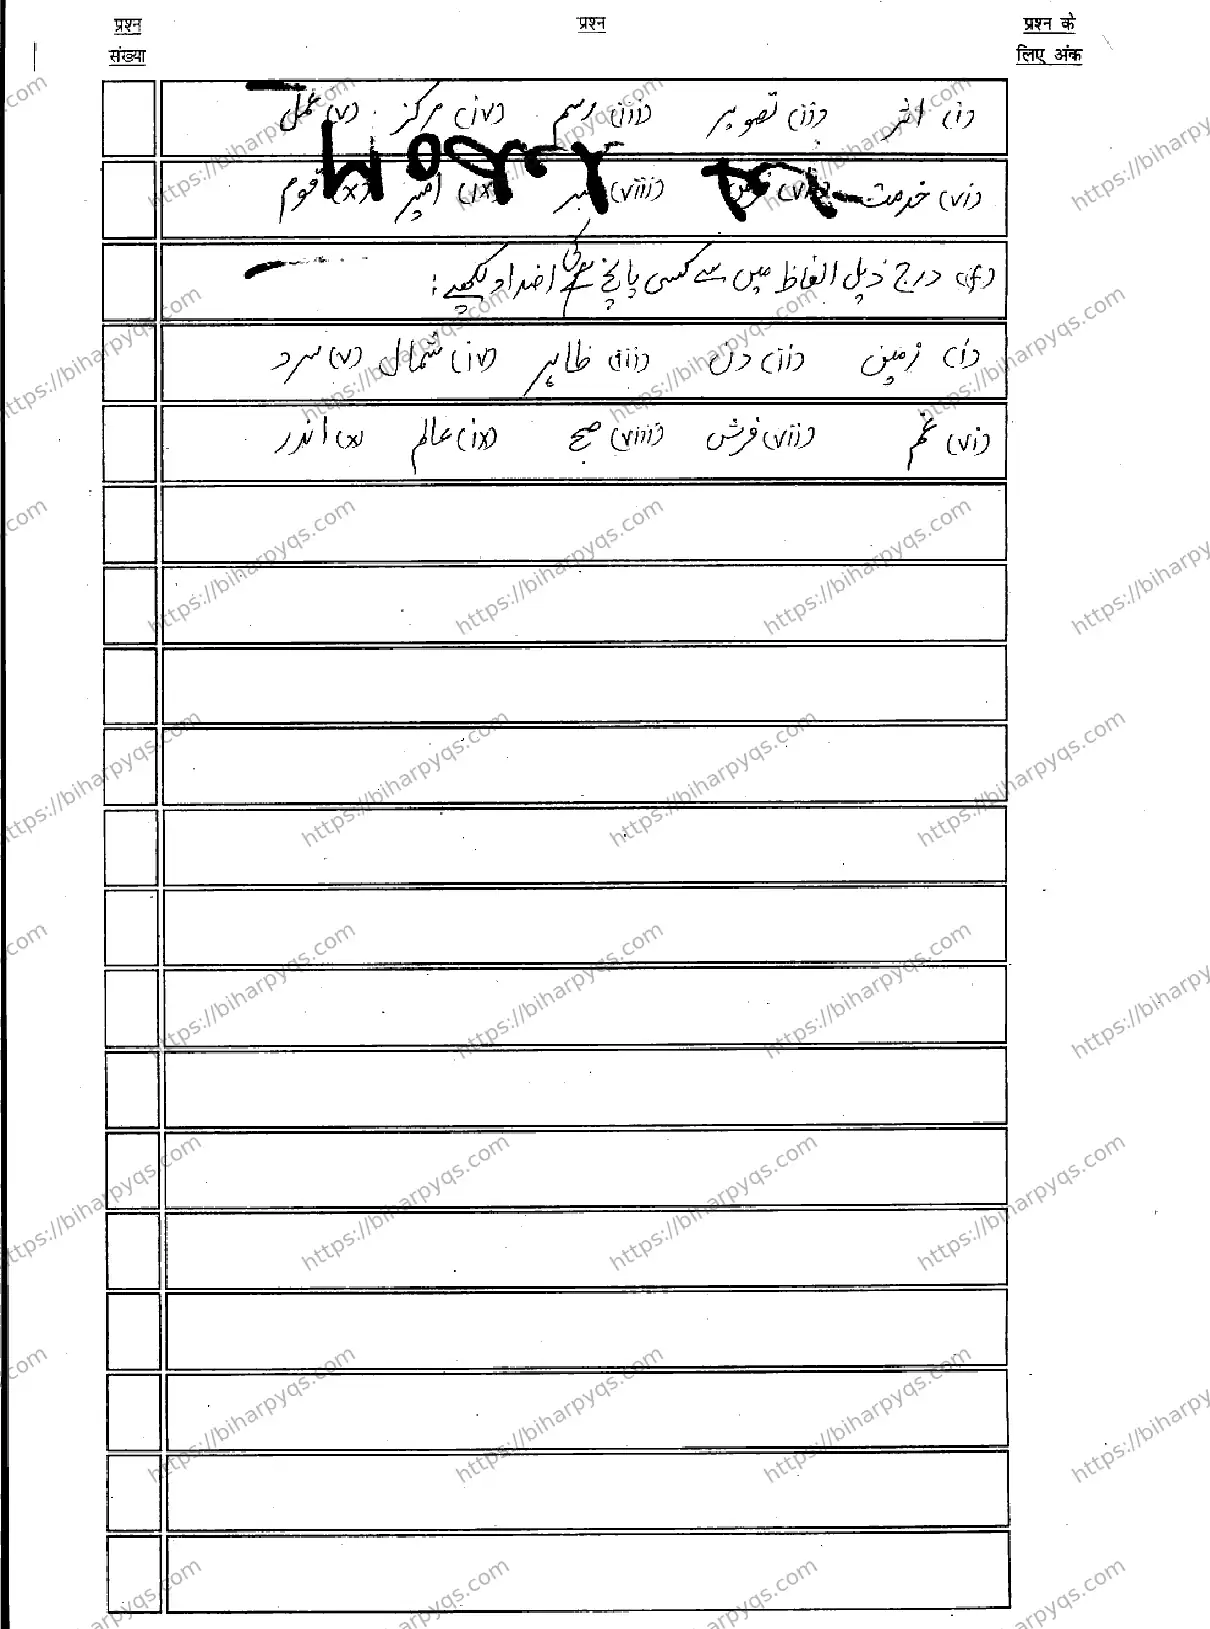 प्रश्न संख्या
प्रश्न
प्रश्न के लिए अंक
(i) اثر (ii) تصویر (iii) رسم (iv) مرکز (v) عمل
(vi) خدمت (vii) (viii) (ix) امیر (x) قوم
(f) درج ذیل الفاظ میں سے کسی پانچ کی اضداد لکھیے:
(i) زمین (ii) دن (iii) ظاہر (iv) شمال (v) سرد
(vi) غم (vii) فرش (viii) صبح (ix) عالم (x) اندر
https://biharpyqs.com